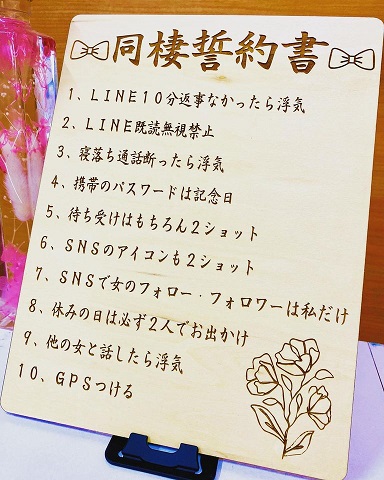 同棲誓約書
1、LINE10分返事なかったら浮気
2、LINE既読無視禁止
3、寝落ち通話断ったら浮気
4、携帯のパスワードは記念日
5、待ち受けはもちろん2ショット
6、SNSのアイコンも2ショット
7、SNSで女のフォロー・フォロワーは私だけ
8、休みの日は必ず2人でお出かけ
9、他の女と話したら浮気
10、GPSつける